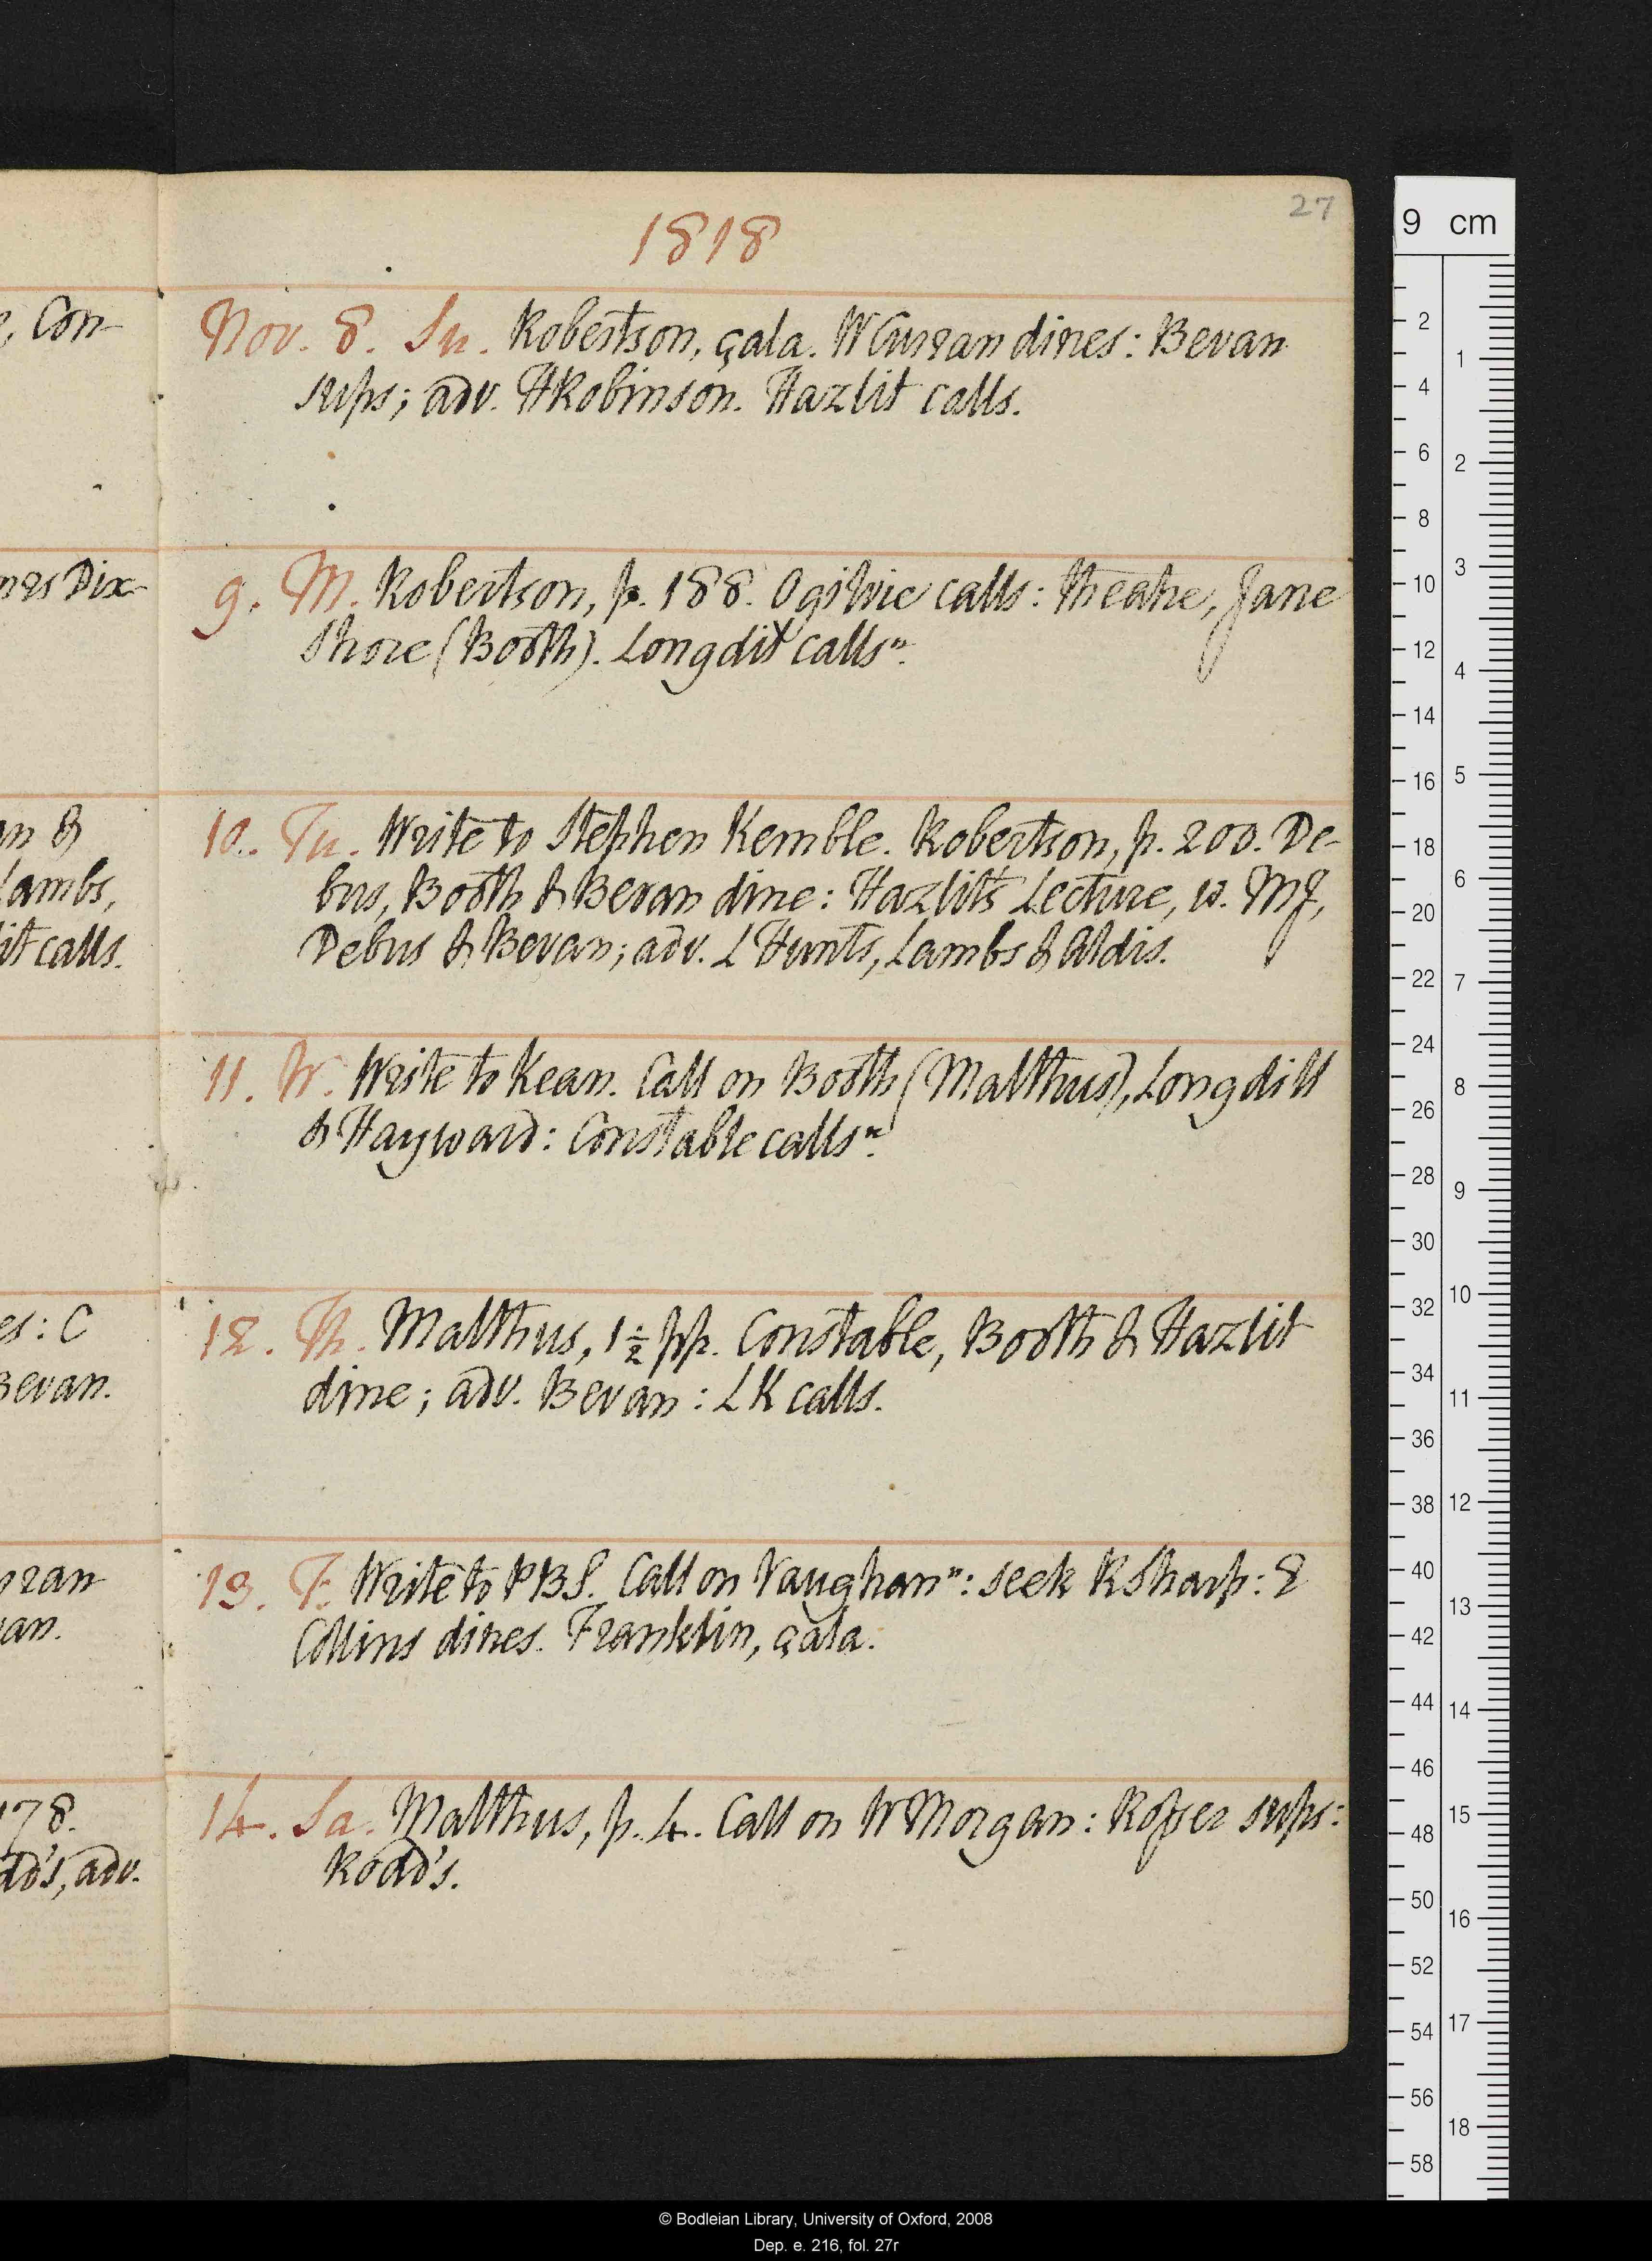 27
1818
, Con-
Nov. 8. Su. Robertson, çala. W Curran dines: Bevan
sups; adv. HRobinson. Hazlit calls.
mrs Dix-
9. M. Robertson, p. 188. Ogilvie calls: theatre, Jane
Shore (Booth). Longdil calls n.
n &
Lambs,
it calls.
10. Tu. Write to Stephen Kemble. Robertson, p. 200. De-
bus, Booth & Bevan dine: Hazlit's Lecture, w. MJ,
Debus & Bevan; adv. L Hunts, Lambs & Aldis.
11. W. Write to Kean. Call on Booth (Malthus), Longdill
& Hayward: Constable calls n.
es: C
Bevan.
12. Th. Malthus, 1 1/2 pp. Constable, Booth & Hazlit
dine; adv. Bevan: LK calls.
rran
an.
13. F. Write to PBS. Call on Vaughan n: seek RSharp: E
Collins dines. Franklin, çala.
178.
dd's, adv.
14. Sa. Malthus, p. 4. Call on W Morgan: Rosser sups:
Rodd's.
9 cm
2 4 6 8 10 12 14 16 18 20 22 24 26 28 30 32 34 36 38 40 42 44 46 48 50 52 54 56 58
1 2 3 4 5 6 7 8 9 10 11 12 13 14 15 16 17 18
© Bodleian Library, University of Oxford, 2008
Dep. e. 216, fol. 27r